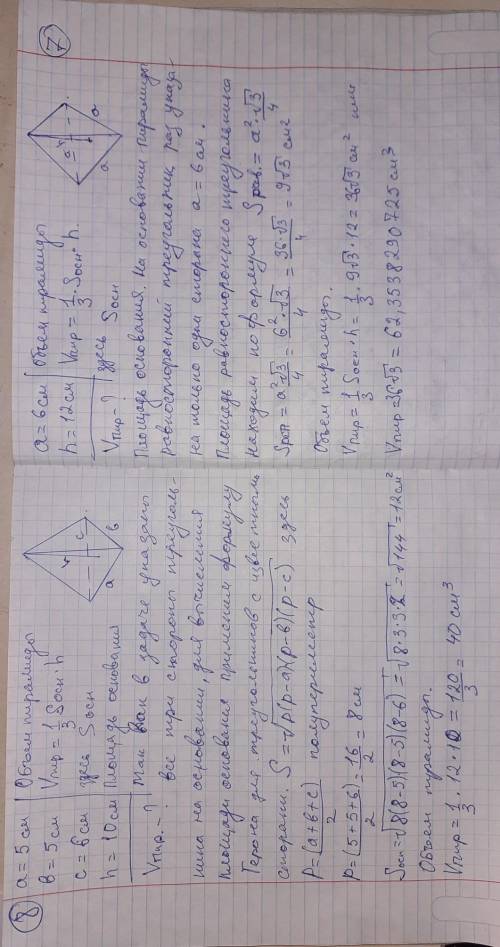 8
a = 5 см | Объем пирамиды
в = 5 см | Vпир = 1/3 Sосн · h
c = 6 см | здесь Sосн
h = 10 см | Площадь основания
Vпир. - ? | Так как в задаче указаны
все три стороны треуголь-
ника на основании, для вычисления
площади основания применим формулу
Герона для треугольников с известными
сторонами. S = √(p(p-a)(p-в)(p-c)) здесь
P = (a+в+c)/2 полупериметр
p = (5+5+6)/2 = 16/2 = 8 см
Sосн = √(8(8-5)(8-5)(8-6)) = √(8·3·3·2) = √144 = 12 см²
Объем пирамиды.
Vпир = 1/3 · 12 · 10 = 120/3 = 40 см³
h
c
a
в
7
a = 6 см | Объем пирамиды
h = 12 см | Vпир = 1/3 · Sосн · h.
Vпир - ? | здесь Sосн
Площадь основания. На основании пирамиды
равносторонний треугольник раз указа-
на только одна сторона a = 6 см.
Площадь равностороннего треугольника
находим по формуле Sрав. = a² · √3/4
Sрав = a²√3/4 = 6²·√3/4 = 36·√3/4 = 9√3 см²
Объем пирамиды.
Vпир = 1/3 Sосн · h = 1/3 · 9√3 · 12 = 36√3 см³ или
Vпир = 36√3 = 62,3538290725 см³
h
a
a
a